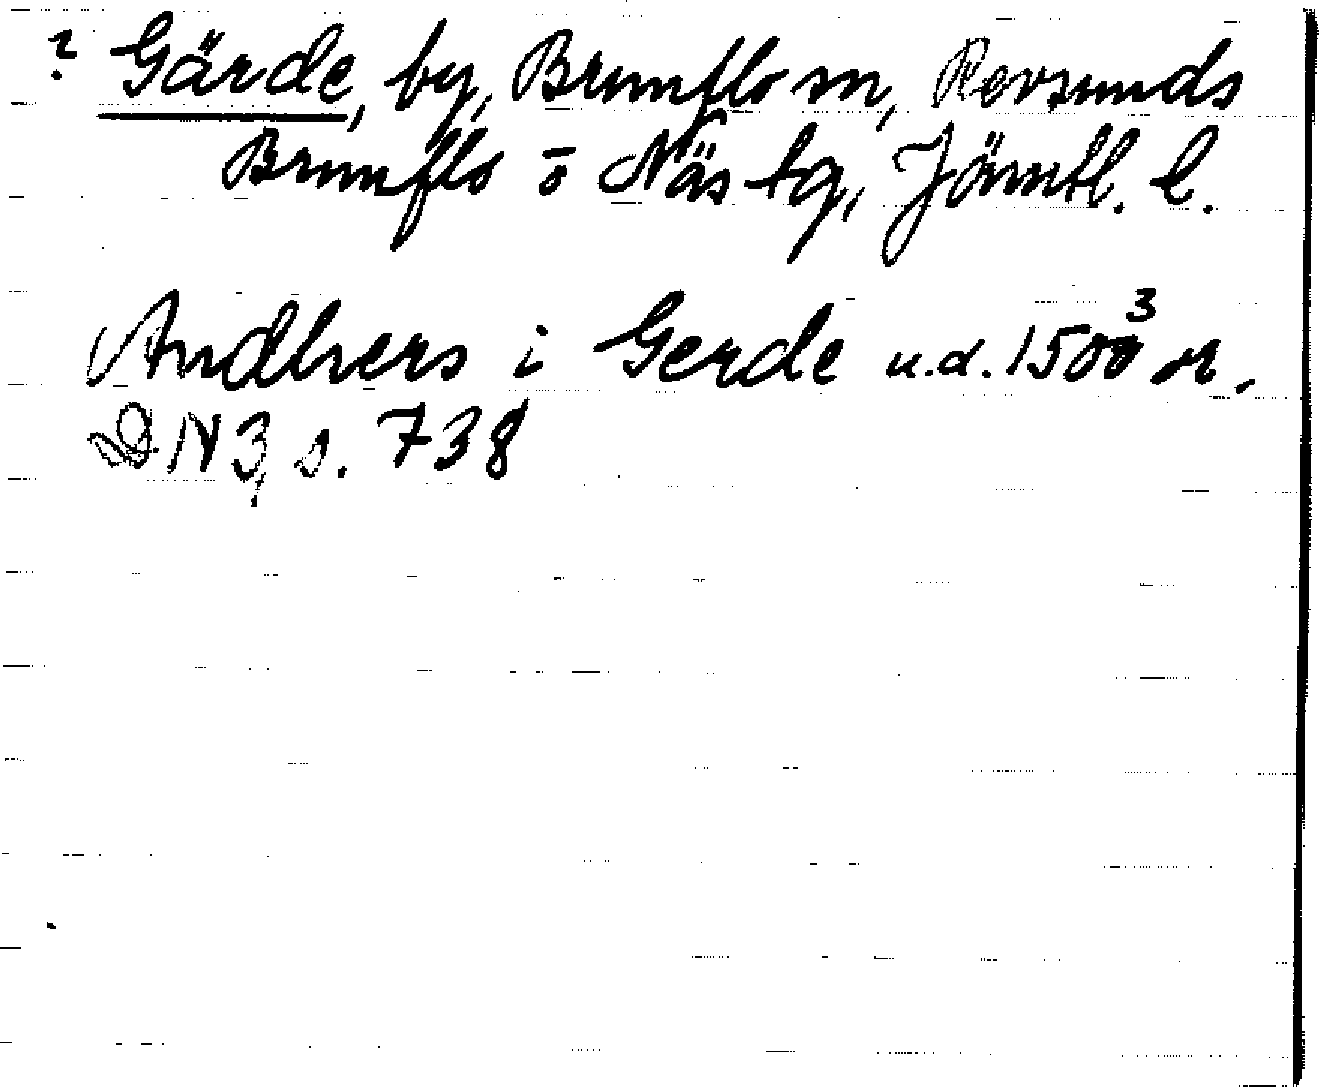 ? Gärde, by, Brunflo sn, Revsunds
Brunflo o Näs tg, Jämtl. l.
Andhers i Gerde u.d. 1503 or.
DN 3, s. 738